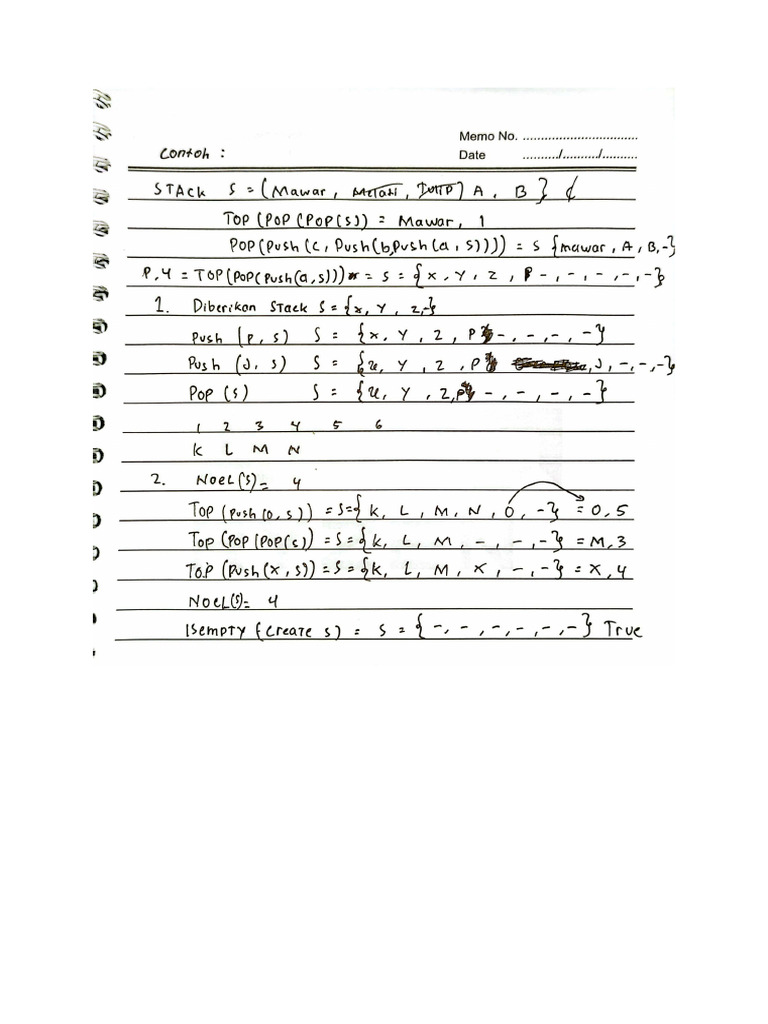 Memo No. ................................
Contoh :
Date ........../........../..........
STACK S = (Mawar, Melati, Tulip) A, B }
TOP (POP (POP (S)) = Mawar, 1
POP (Push (c, Push (b, Push (a, s)))) = S {mawar, A, B, -}
P, 4 = TOP (POP (Push (a, s))) = S = {X, Y, Z, P -, -, -, -, -}
1. Diberikan Stack S = {x, Y, Z, -}
Push (P, S) S = {X, Y, Z, P -, -, -, -}
Push (J, S) S = {x, Y, Z, P, J, -, -, -}
Pop (S) S = {x, Y, Z, P -, -, -, -}
1 2 3 4 5 6
K L M N
2. NOEL(S) = 4
TOP (Push (O, S)) = S = {K, L, M, N, O, -} = O, 5
TOP (POP (POP (S)) = S = {K, L, M, -, -, -} = M, 3
TOP (Push (X, S)) = S = {K, L, M, X, -, -} = X, 4
NOEL(S) = 4
ISEMPTY (Create S) = S = {-, -, -, -, -, -} True